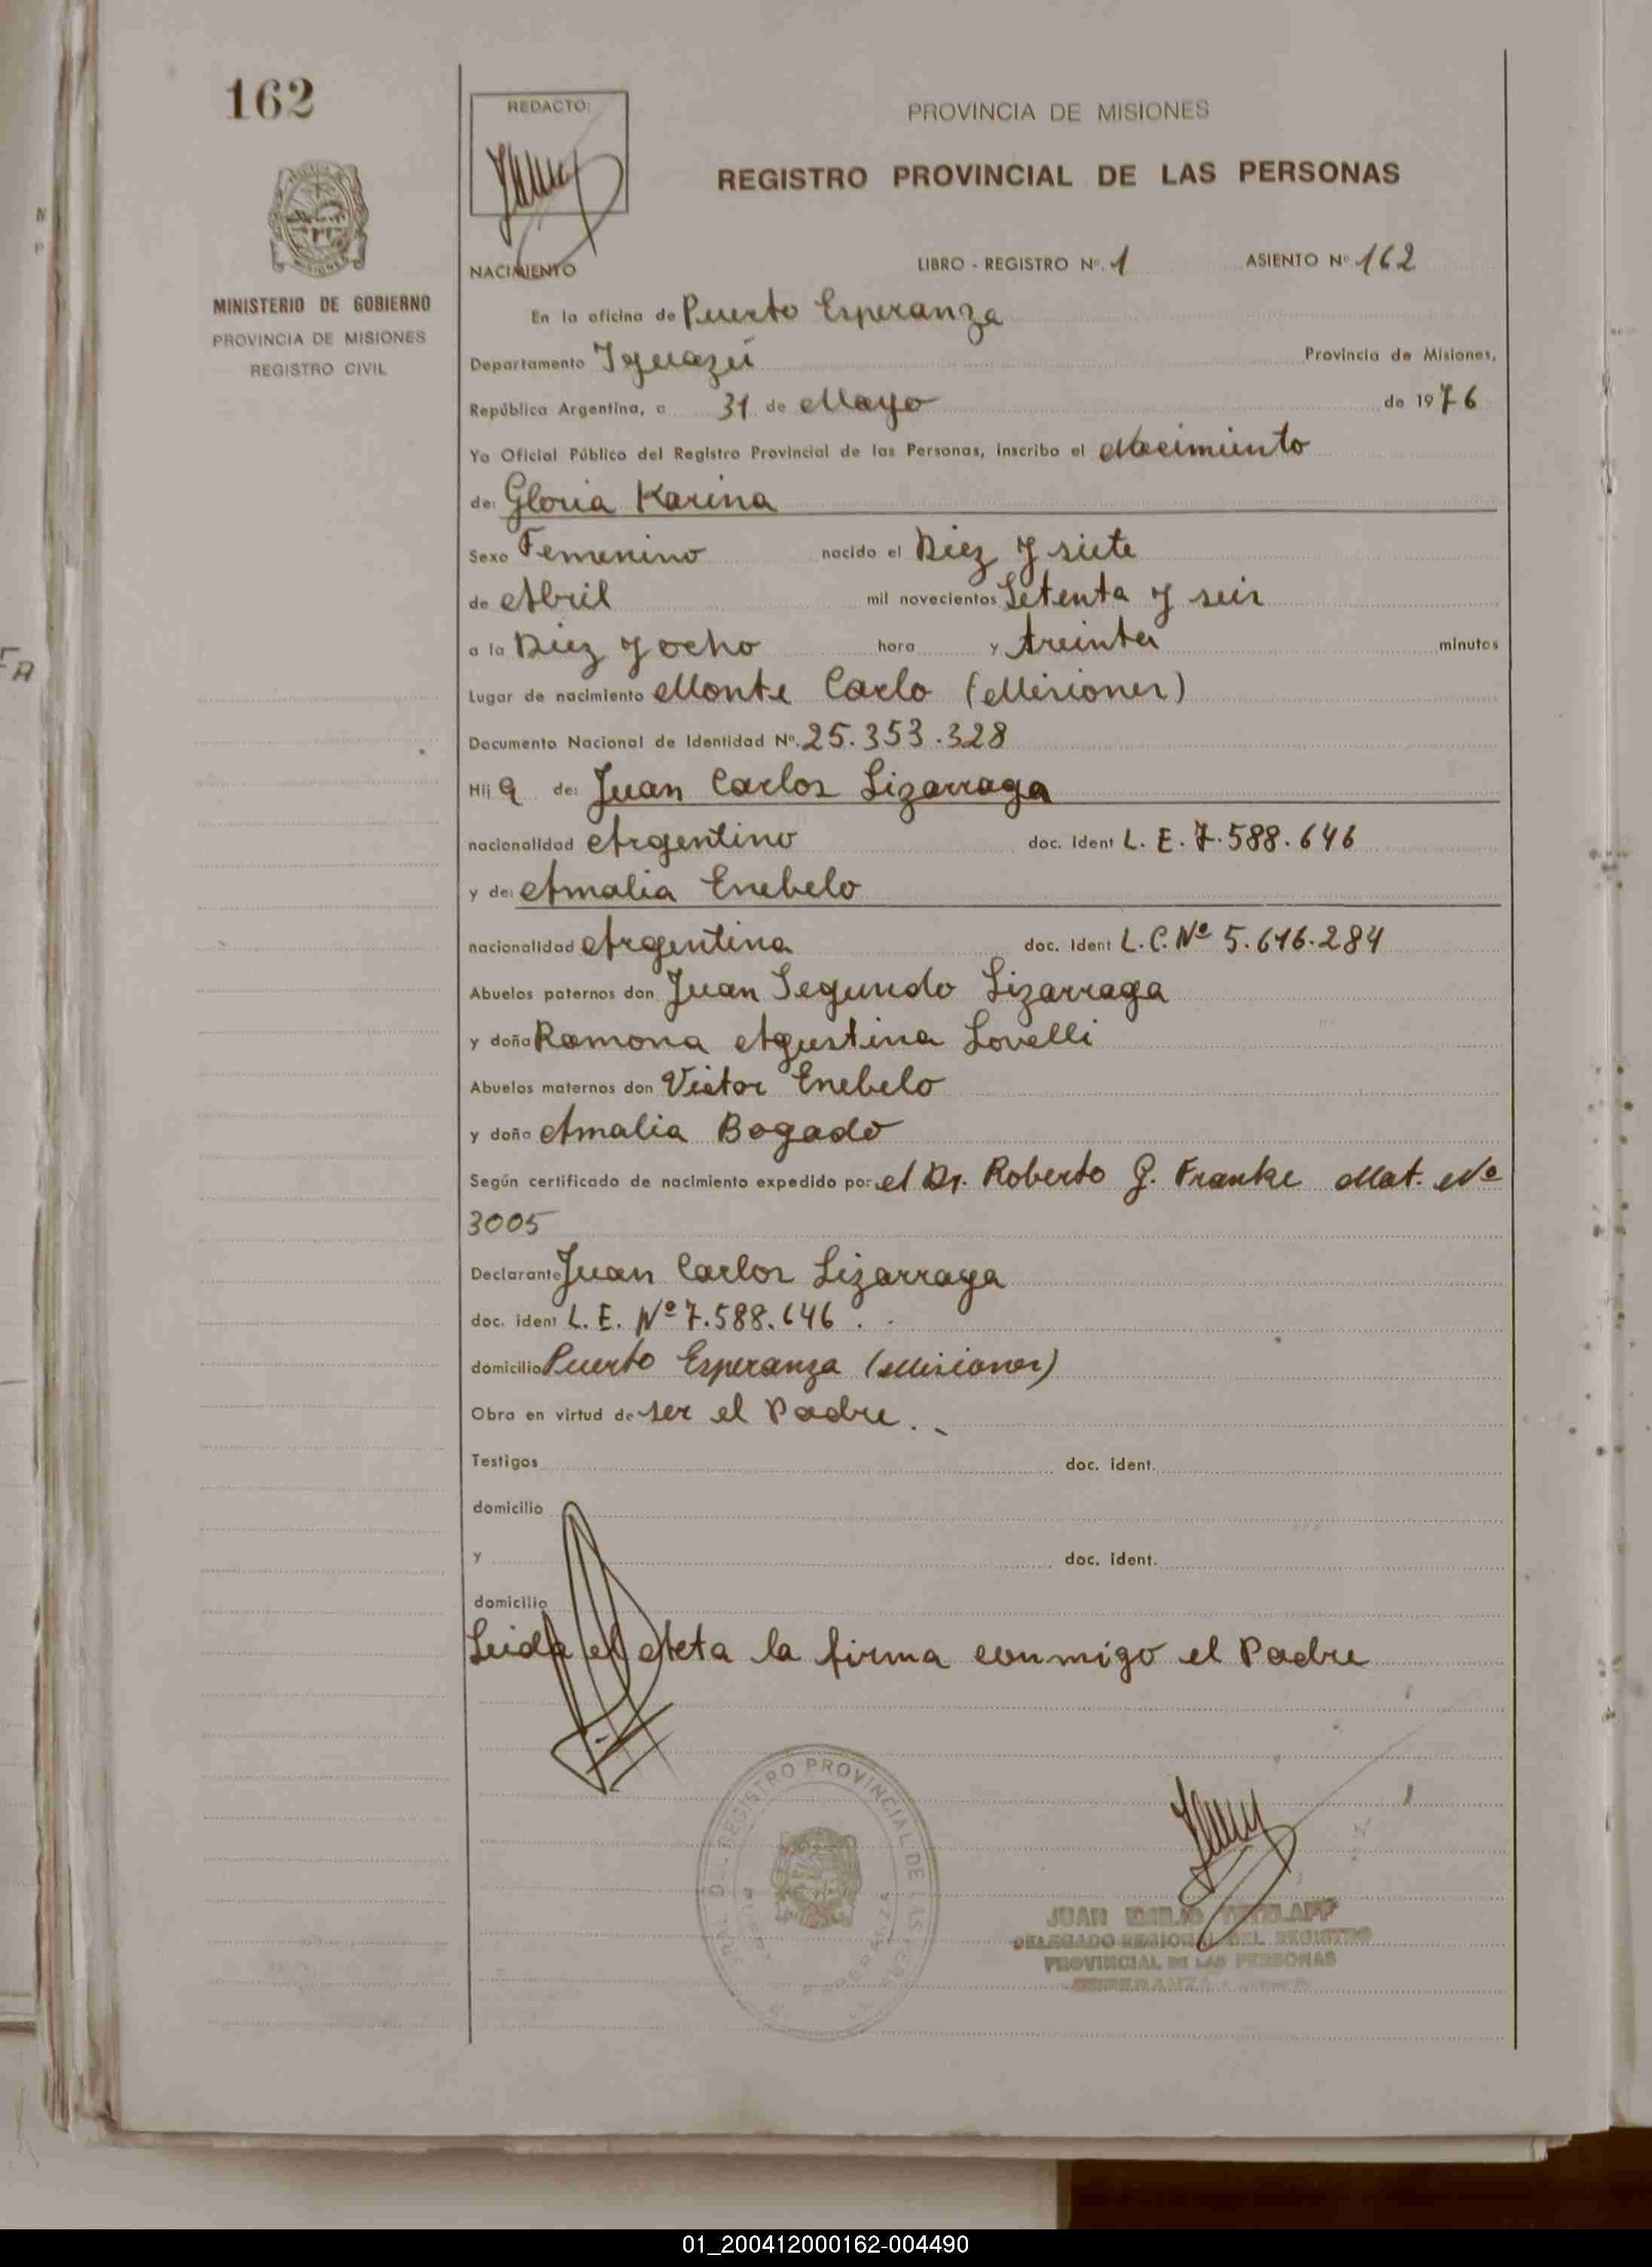 162
REDACTO:
PROVINCIA DE MISIONES
REGISTRO PROVINCIAL DE LAS PERSONAS
NACIMIENTO
LIBRO - REGISTRO Nº. 1 ASIENTO Nº 162
MINISTERIO DE GOBIERNO
PROVINCIA DE MISIONES
REGISTRO CIVIL
En la oficina de Puerto Esperanza
Departamento Iguazú Provincia de Misiones,
República Argentina, a 31 de Mayo de 1976
Yo Oficial Público del Registro Provincial de las Personas, inscribo el Nacimiento
de: Gloria Karina
Sexo Femenino nacido el Diez y siete
de Abril mil novecientos Setenta y seis
a la Diez y ocho hora y treinta minutos
Lugar de nacimiento Monte Carlo (Misiones)
Documento Nacional de Identidad Nº. 25.353.328
Hij a de: Juan Carlos Lizarraga
nacionalidad Argentino doc. Ident L. E. 7.588.646
y de: Amalia Enebelo
nacionalidad Argentina doc. Ident L.C. Nº 5.616.284
Abuelos paternos don Juan Segundo Lizarraga
y doña Ramona Agustina Lovelli
Abuelos maternos don Victor Enebelo
y doña Amalia Bogado
Según certificado de nacimiento expedido por el Dr. Roberto G. Franke Mat. Nº
3005
Declarante Juan Carlos Lizarraga
doc. ident L. E. Nº 7.588.646.
domicilio Puerto Esperanza (Misiones)
Obra en virtud de ser el Padre.
Testigos doc. ident.
domicilio
y doc. ident.
domicilio
Leida el Acta la firma conmigo el Padre
DEL REGISTRO PROVINCIAL DE LAS
JUAN EMILIO
DELEGADO REGIONAL DEL REGISTRO
PROVINCIAL DE LAS PERSONAS
ESPERANZA
01_200412000162-004490